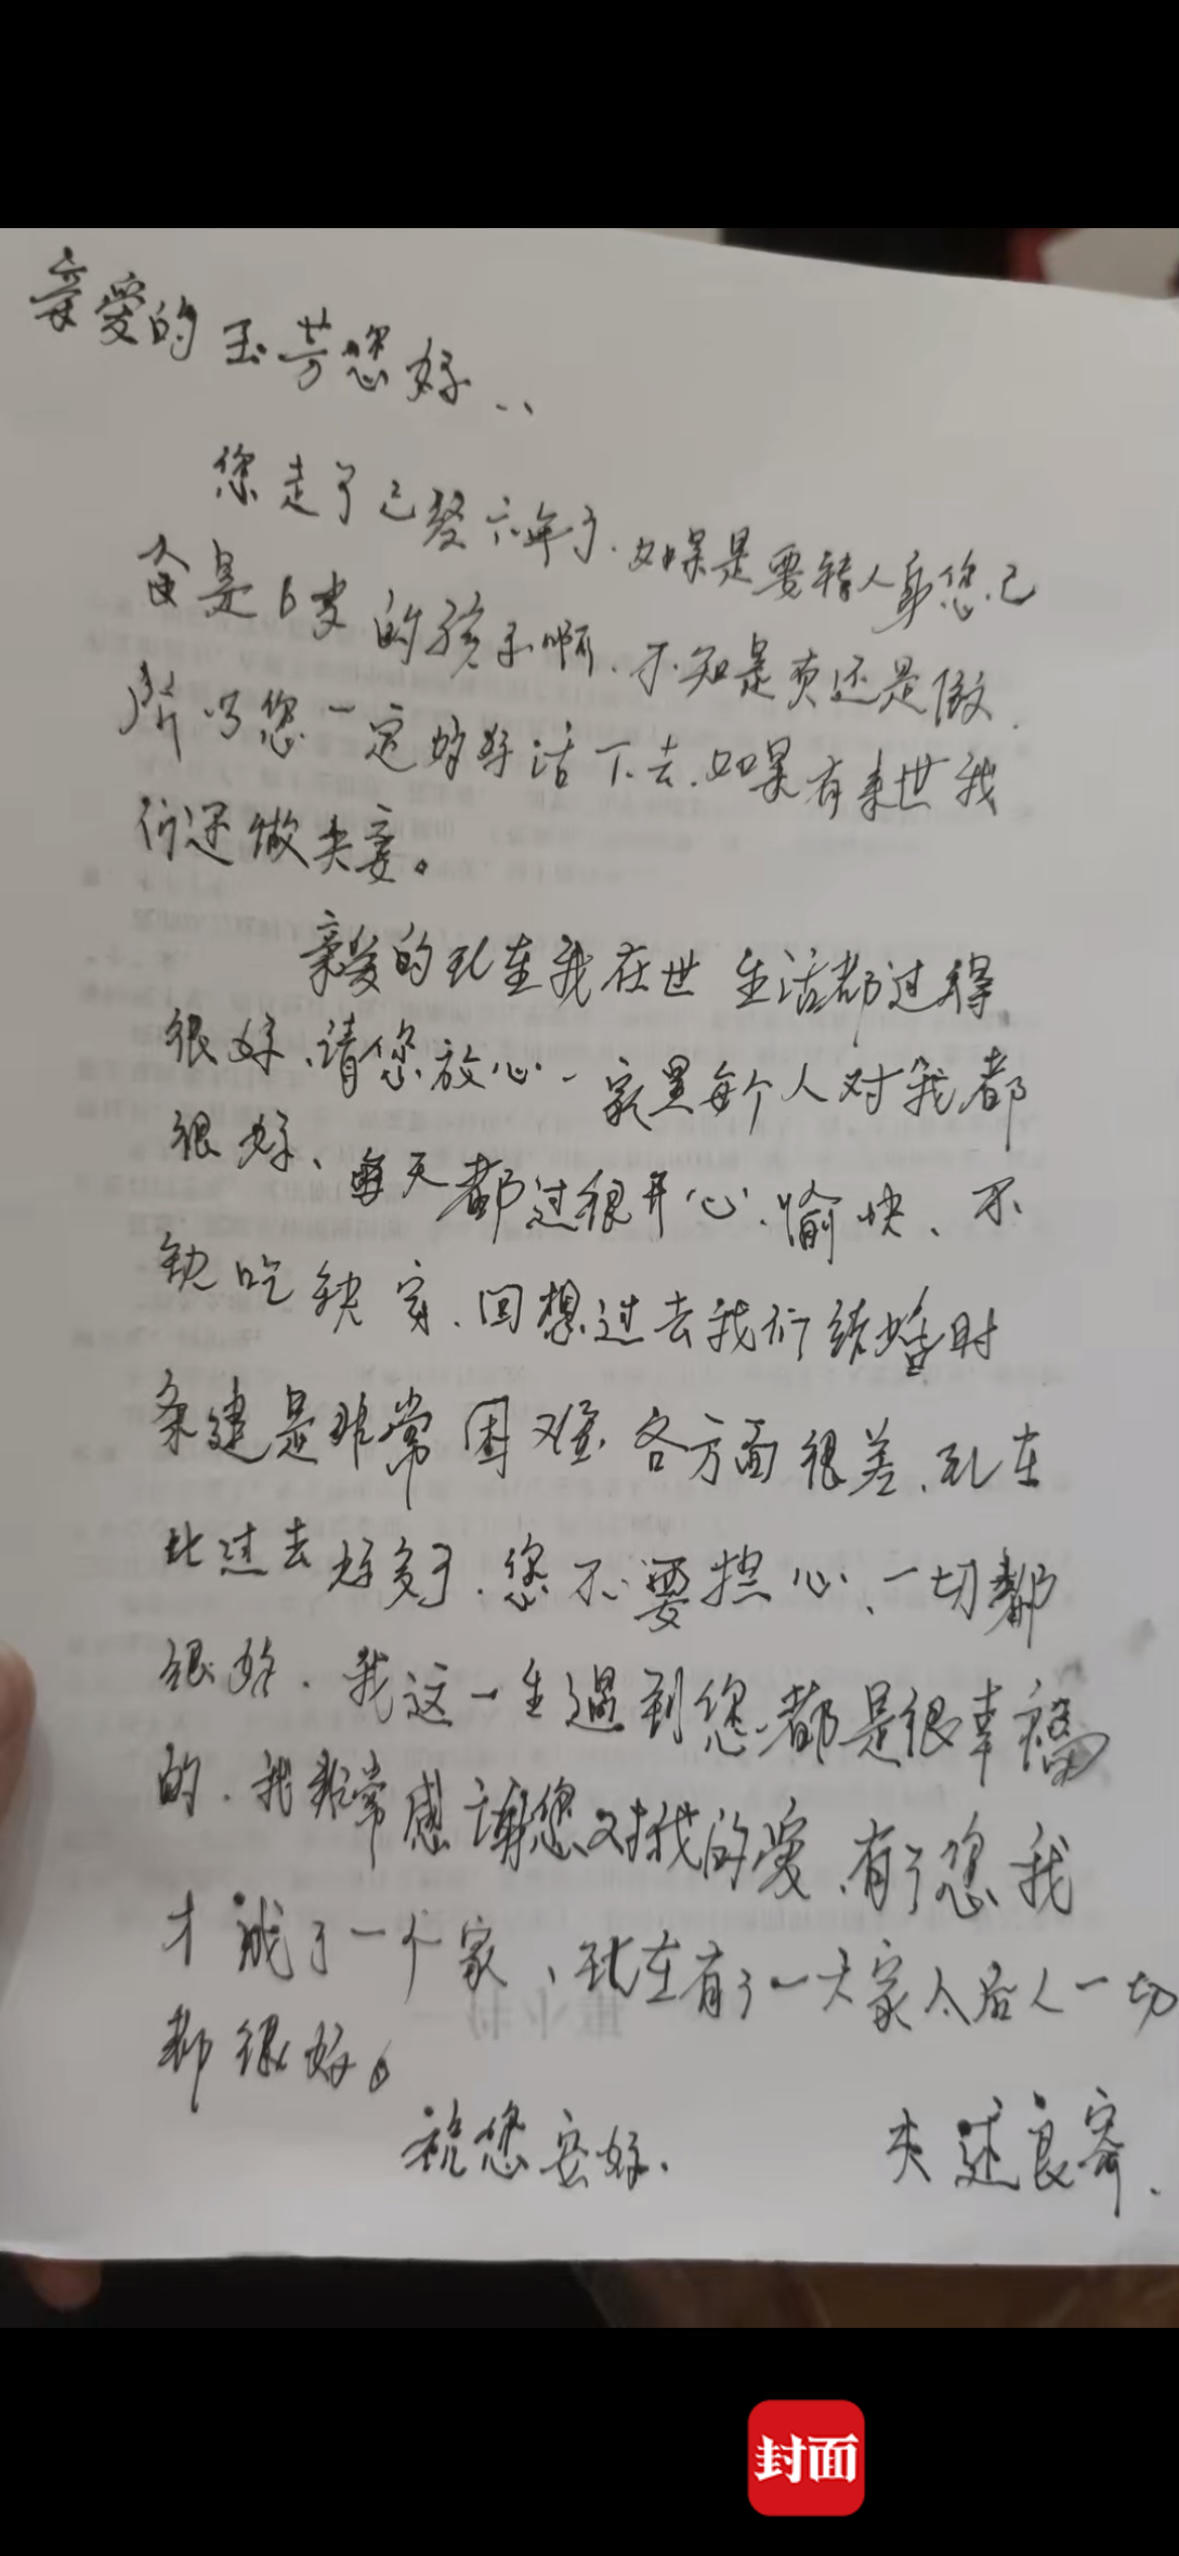 亲爱的玉芳您好..
您走了已经六年了.如果是要转人身您已
是6岁的孩子啊.不知是男还是做.
所以您一定好好活下去.如果有来世我
们还做夫妻。
亲爱的现在我在世生活都过得
很好、请您放心.一家里每个人对我都
很好、每天都过很开心、愉快、不
缺吃缺穿、回想过去我们结婚时
条建是非常困难各方面很差、现在
比过去好多了.您不要担心、一切都
很好.我这一生遇到您都是很幸福
的.我非常感谢您对我的爱、有了您我
才成了一个家、现在有了一大家人后人一切
都很好。
祝您安好.
夫述良寄.
封面